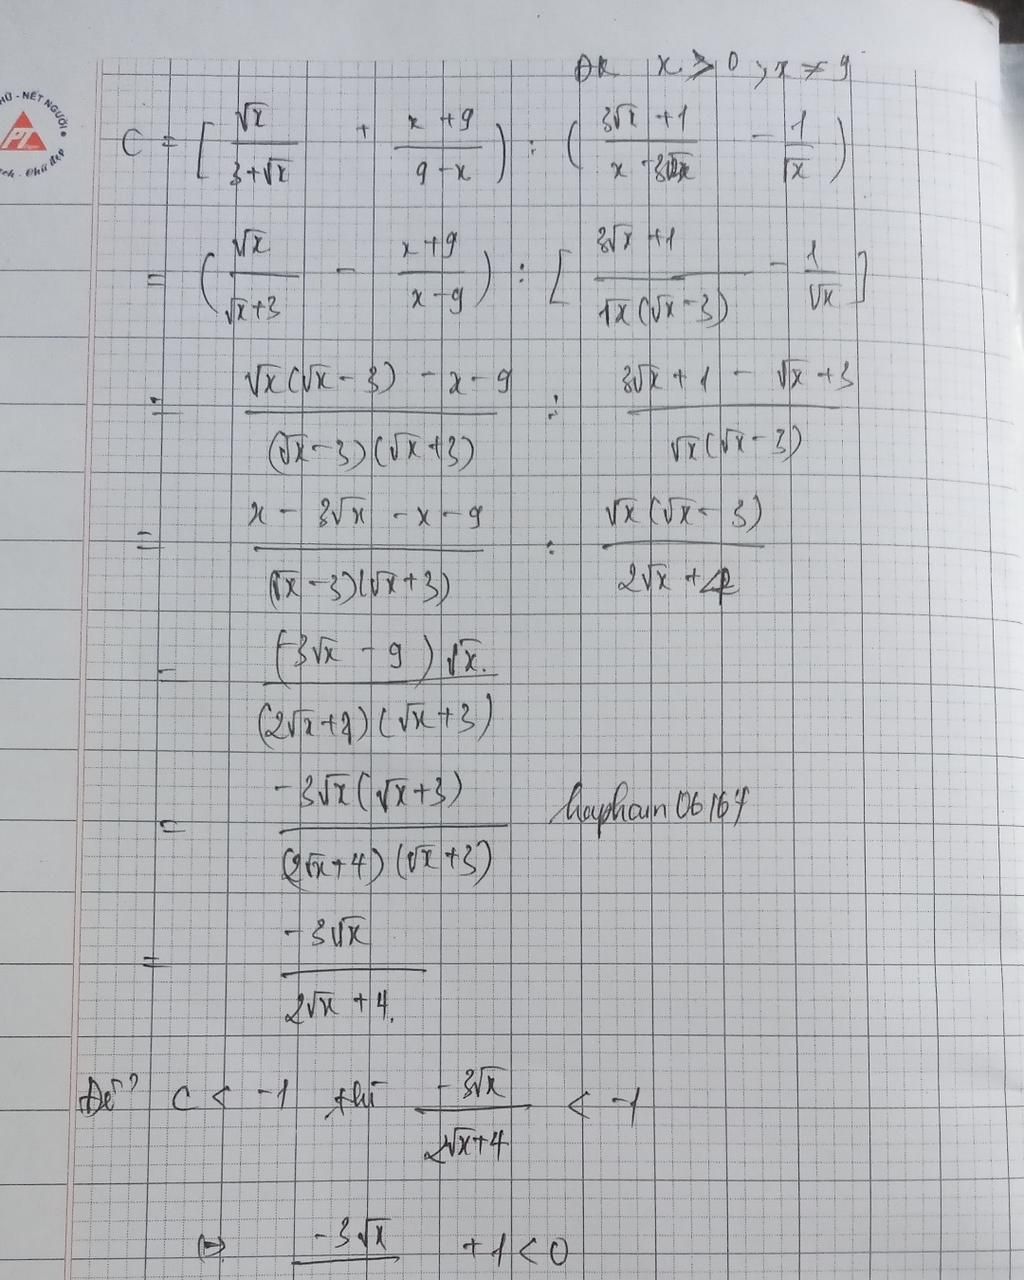 ĐK x > 0 ; x ≠ 9
HŨ - NÉT NGƯỜI
PT
ch - Chữ đẹp
C = [ √x / (3+√x) + (x+9) / (9-x) ) : ( (3√x+1) / (x-3√x) - 1/√x )
= ( √x / (√x+3) - (x+9) / (x-9) ) : [ (3√x+1) / (√x(√x-3)) - 1/√x ]
= (√x(√x-3) - x - 9) / ((√x-3)(√x+3)) : (3√x+1 - √x+3) / (√x(√x-3))
= (x - 3√x - x - 9) / ((√x-3)(√x+3)) . (√x(√x-3)) / (2√x+4)
= ((-3√x - 9)√x.) / ((2√x+4)(√x+3))
= (-3√x(√x+3)) / ((2√x+4)(√x+3))
haphain06164
= (-3√x) / (2√x+4.)
Để C < -1 thì (-3√x) / (2√x+4) < -1
(=) -3√x / + 1 < 0